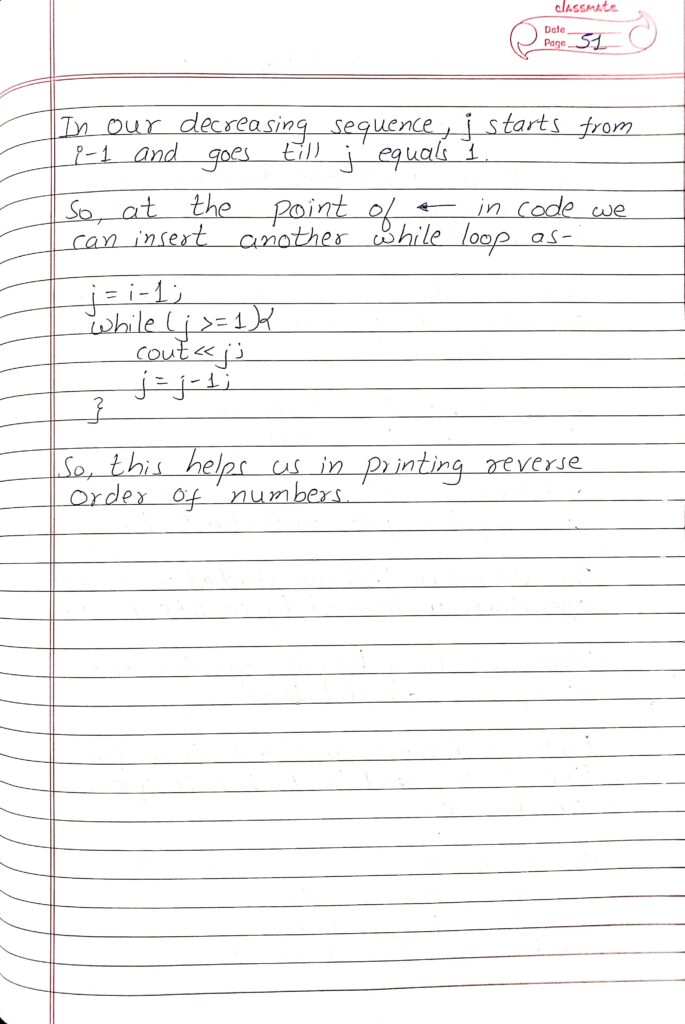 classmate
Date
Page 51
In our decreasing sequence, j starts from
i-1 and goes till j equals 1.
So, at the point of ← in code we
can insert another while loop as-
j = i-1;
while (j >= 1){
cout << j;
j = j-1;
}
So, this helps us in printing reverse
order of numbers.